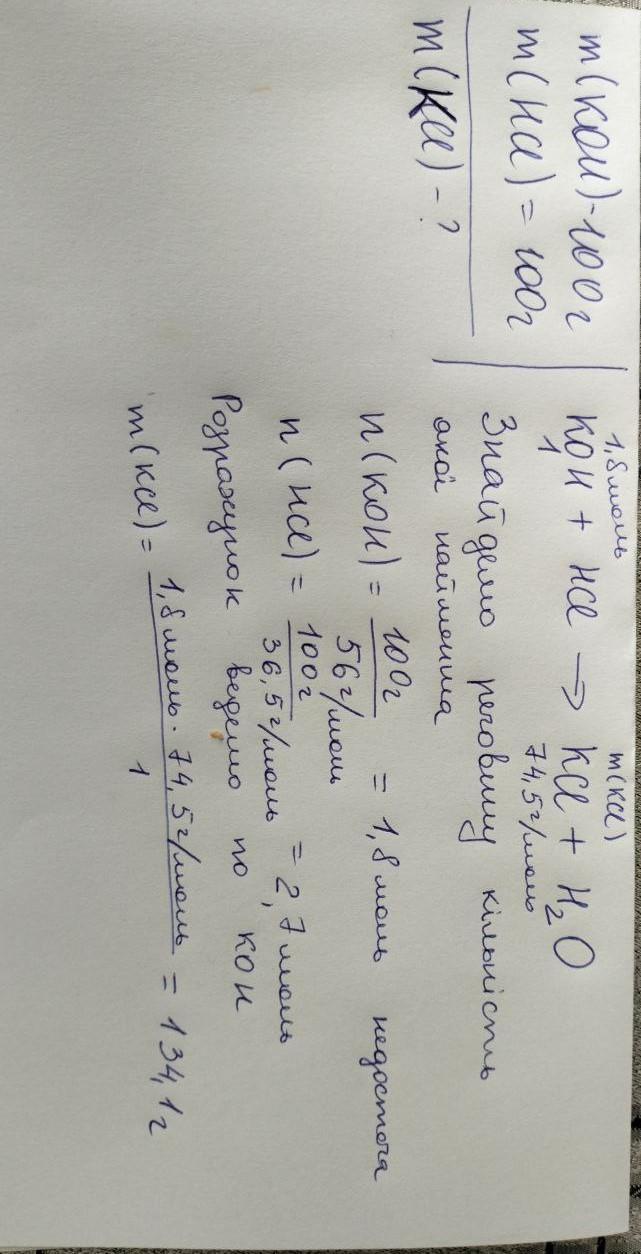 m(KOH)-100г
m(HCl) = 100г
m(KCl) - ?
1,8моль m(KCl)
KOH + HCl → KCl + H₂O
1 74,5г/моль
Знайдемо речовину кількість
якої найменша
n(KOH) = 100г / 56г/моль = 1,8моль недостача
n(HCl) = 100г / 36,5г/моль = 2,7моль
Розрахунок ведемо по KOH
m(KCl) = 1,8моль · 74,5г/моль / 1 = 134,1г